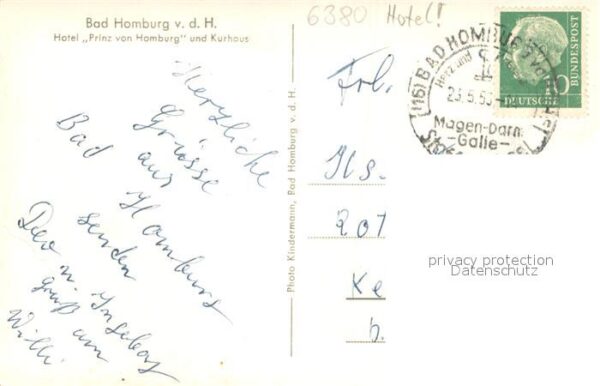 Bad Homburg v. d. H.
Hotel „Prinz von Homburg" und Kurhaus
6380 Hotel!
Herzliche
Grüsse
aus
Bad Homburg
senden
Deo u. Ingeborg
gruß am
Willi
Photo Kindermann, Bad Homburg v. d. H.
Frl.
Ils.
201
Ke
b.
(16) BAD HOMBURG v.d.
Herz und
23.5.5
Magen-Darm
-Galle-
DEUTSCHE BUNDESPOST
10
privacy protection
Datenschutz